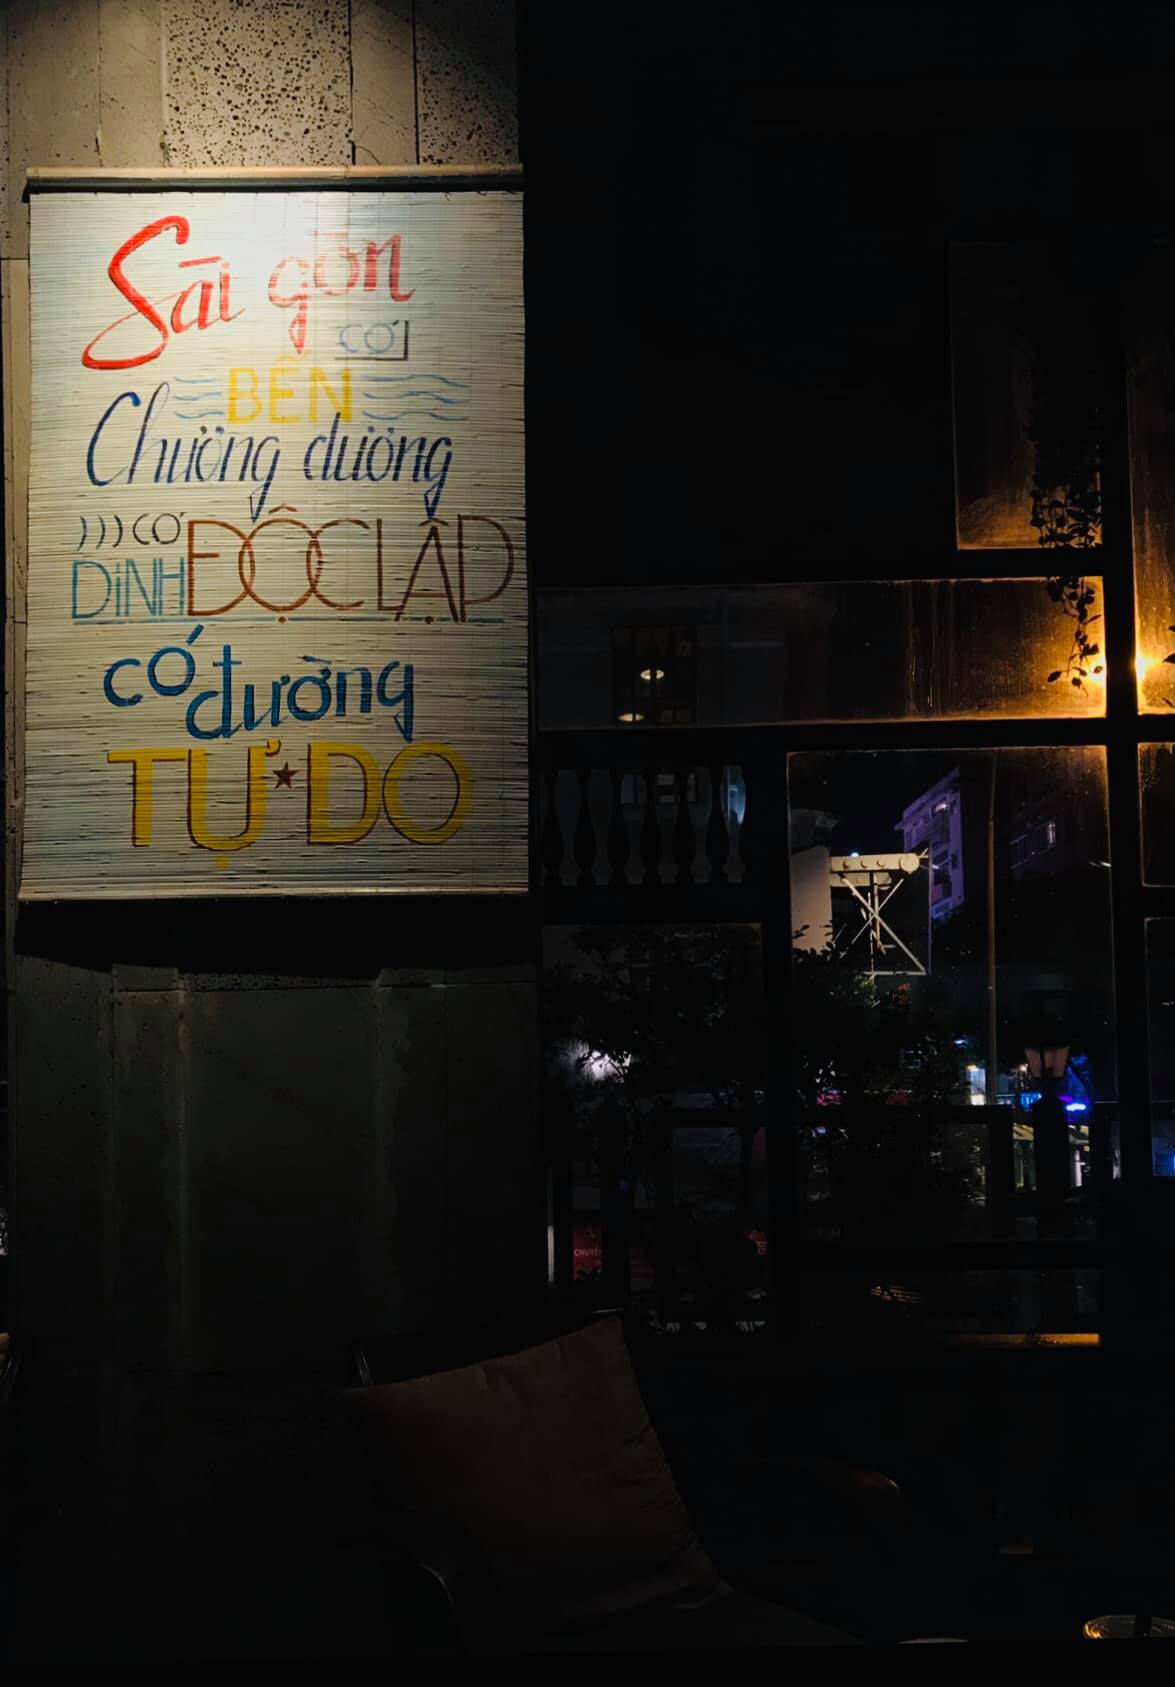 Sài gòn
có
BẾN
Chương dương
có
DINH ĐỘC LẬP
có đường
TỰ DO
CHUYÊ